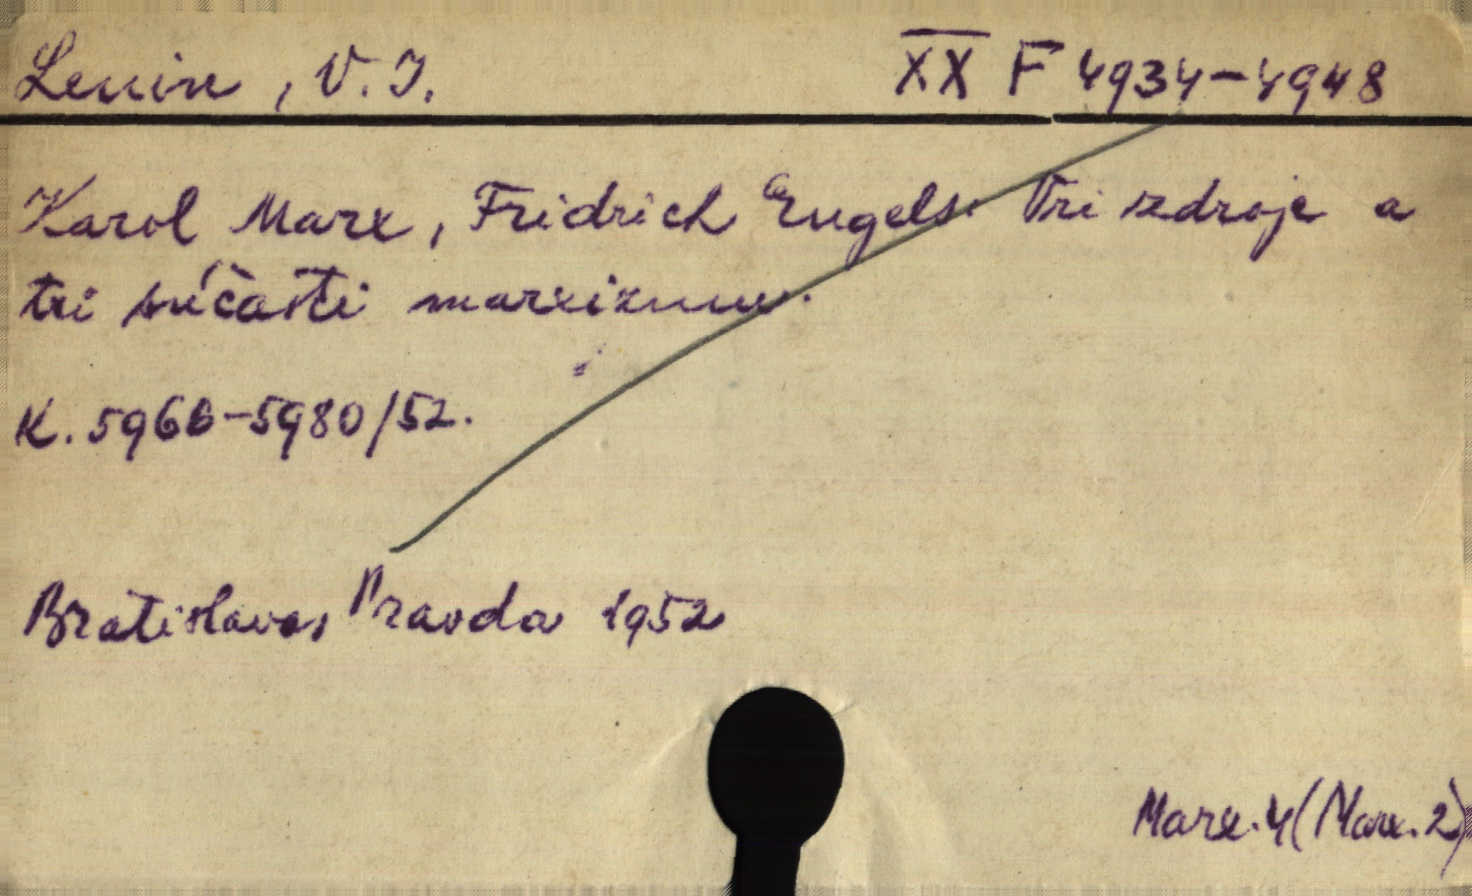 Lenin, V. I. XX F 4934-4948
Karol Marx, Fridrich Engels. Tri zdroje a
tri súčasti marxizmu.
K. 5966-5980/52.
Bratislava, Pravda 1952
Marx. 4 (Marx. 2)